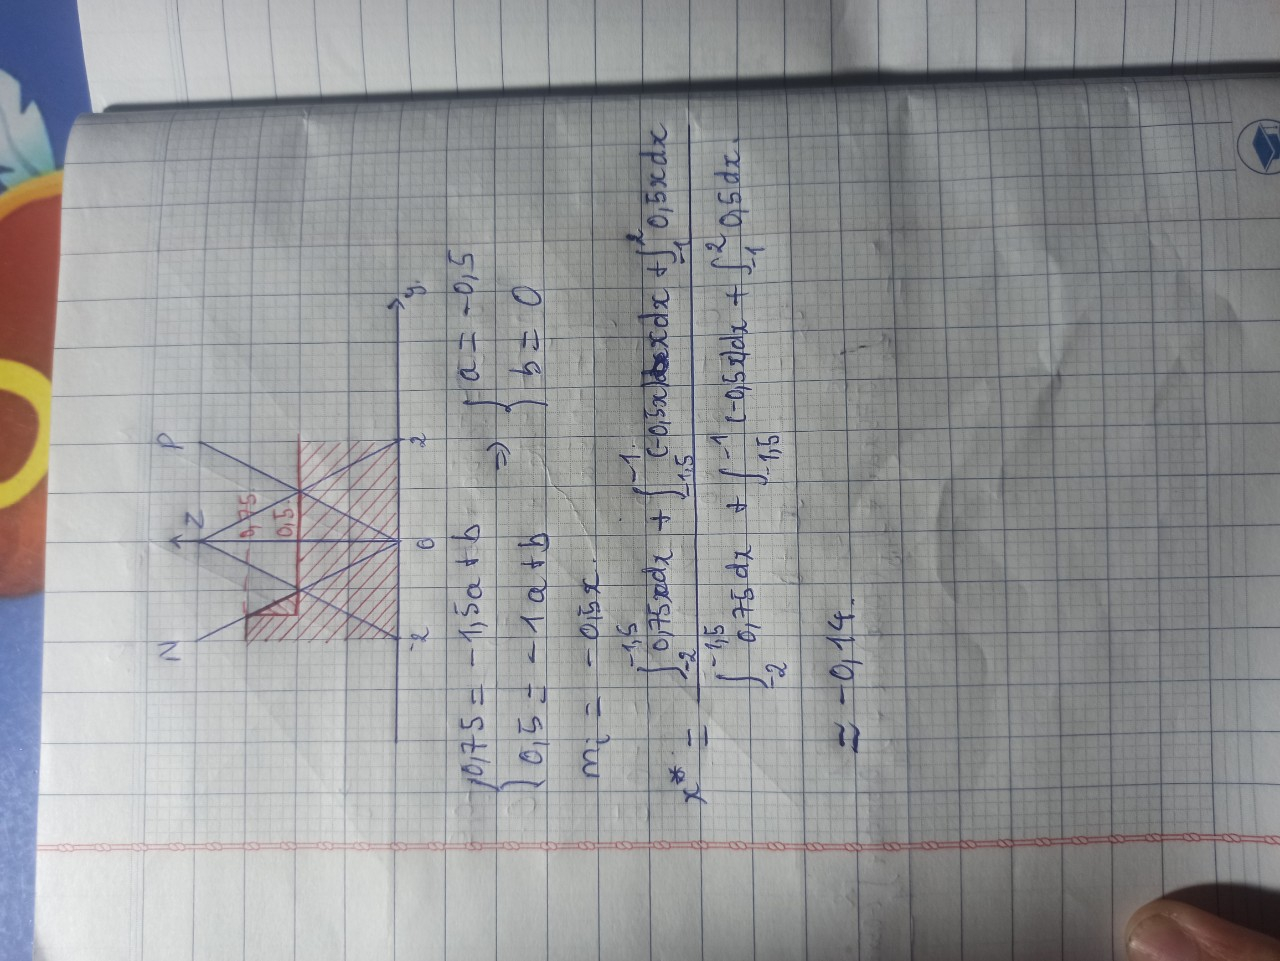 N Z P
0,75
0,5
-2 0 2 y
{ 0,75 = -1,5a + b
{ 0,5 = -1a + b
=> { a = -0,5
{ b = 0
m_i = -0,5x.
x* = (∫_{-2}^{-1,5} 0,75xdx + ∫_{-1,5}^{-1} (-0,5x)xdx + ∫_{-1}^{2} 0,5xdx) / (∫_{-2}^{-1,5} 0,75dx + ∫_{-1,5}^{-1} (-0,5x)dx + ∫_{-1}^{2} 0,5dx.)
≈ -0,14.